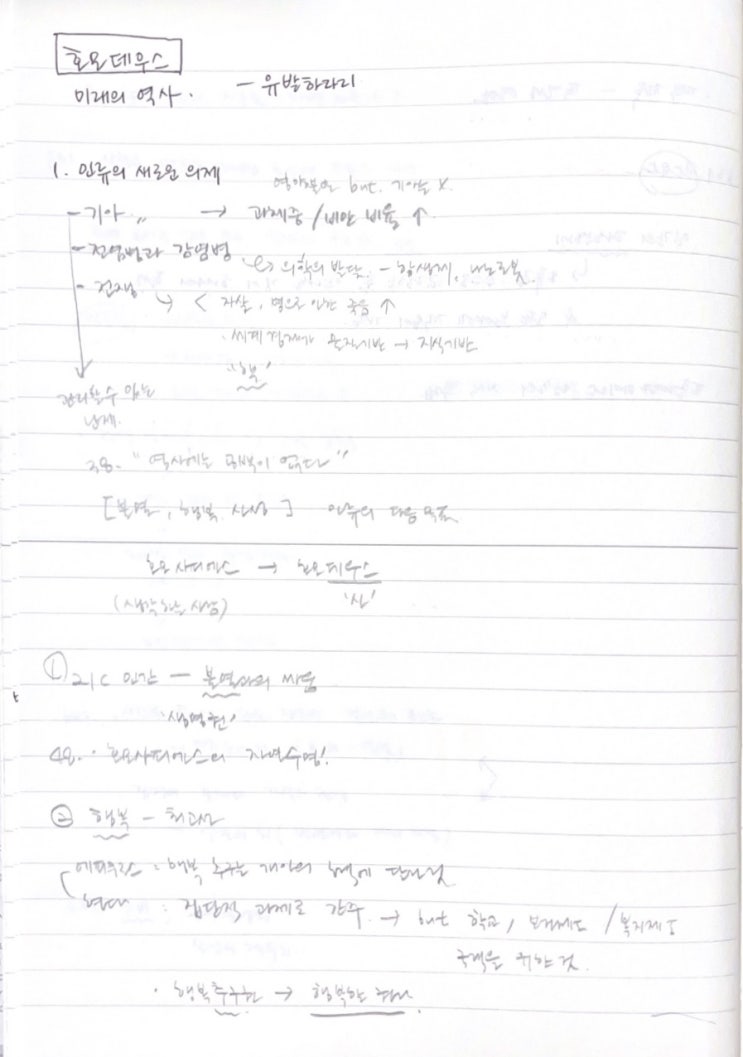 호모데우스
미래의 역사. - 유발하라리
1. 인류의 새로운 의제
영양부족 but. 기아는 X.
- 기아 〃 → 과체중 / 비만 비율 ↑.
- 전염병과 감염병. → 의학의 발달. - 항생제, 나노로봇.
- 전쟁 → < 자살, 병으로 인한 죽음 ↑
· 세계 경제가 물질기반 → 지식기반.
관리할 수 있는
난제.
38. " 역사에는 공백이 없다 "
[ 불멸, 행복, 신성 ] 인류의 다음 목표
호모 사피엔스 → 호모데우스
(생각하는 사람) '신'
① 21C 인간 - 불멸과의 싸움
'생명권'
48. · 호모사피엔스의 자연수명.
② 행복 - 최고선
에피쿠로스 : 행복 추구는 개인의 노력에 달린 것
현대 : 집단적 과제로 간주. → but 학교, 보건제도 / 복지제도
국력을 위한 것.
· 행복추구권 →